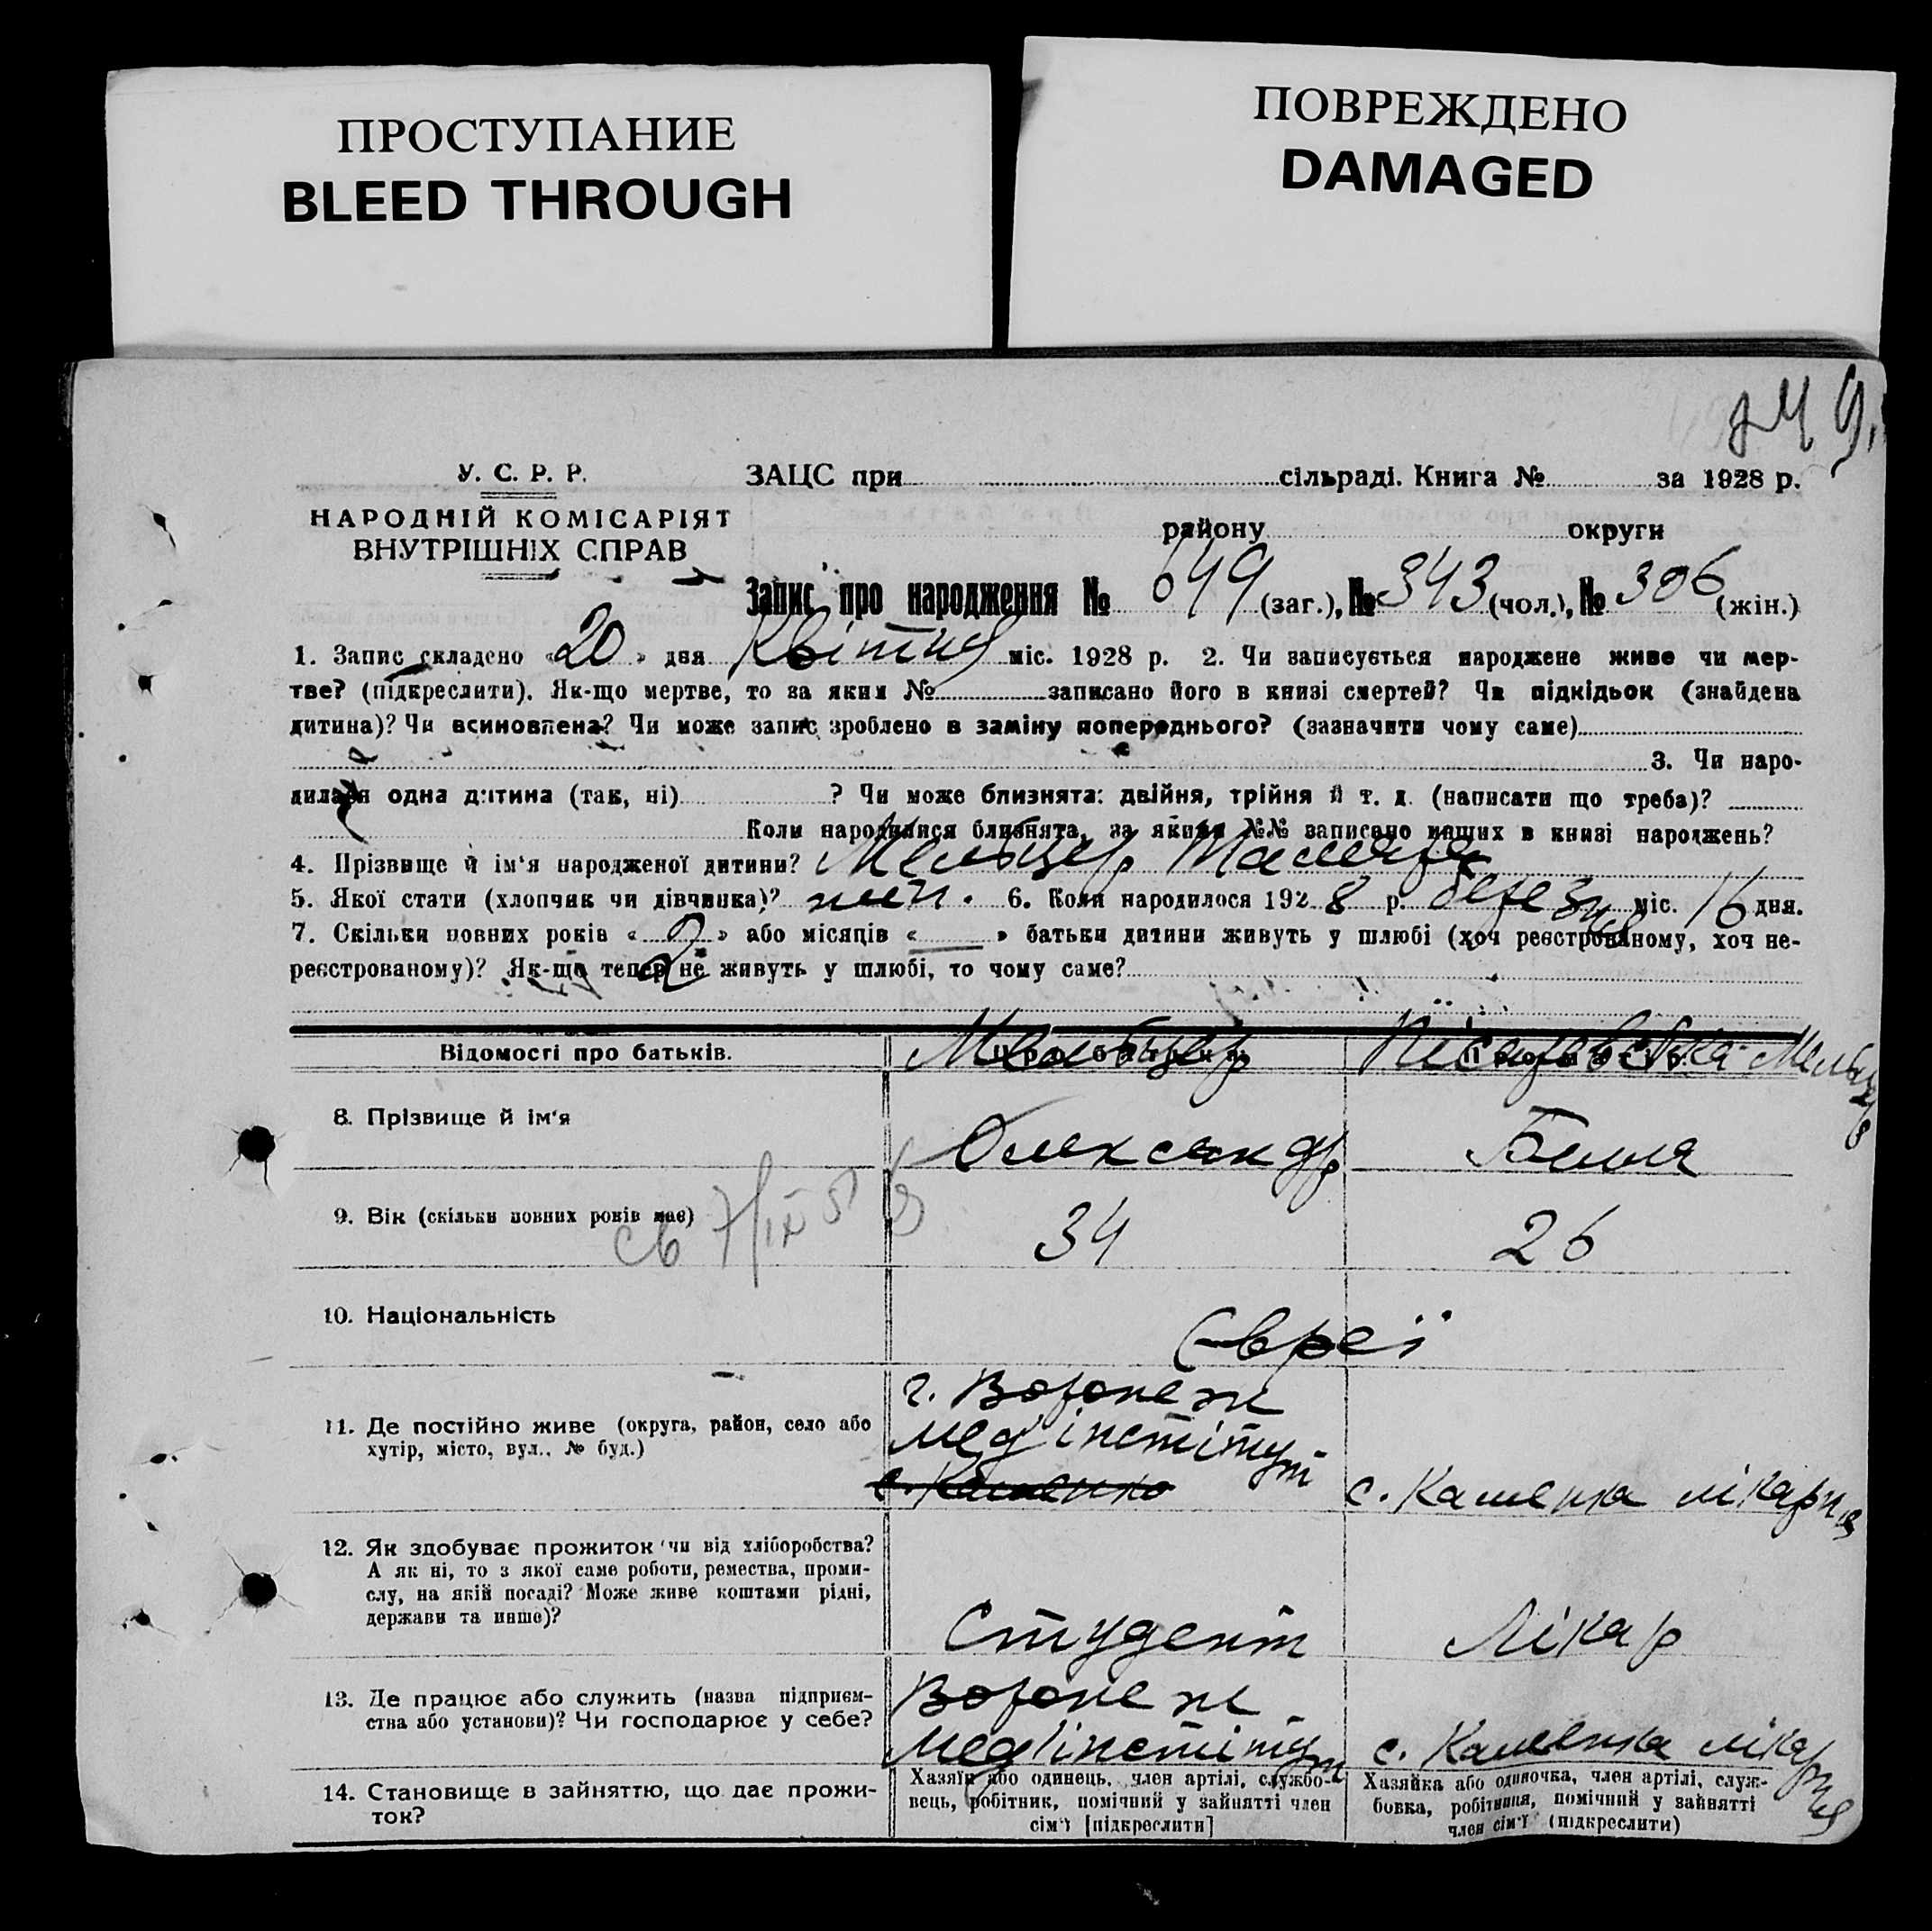 ПРОСТУПАНИЕ
BLEED THROUGH
ПОВРЕЖДЕНО
DAMAGED
У. С. Р. Р.
НАРОДНІЙ КОМІСАРІЯТ
ВНУТРІШНІХ СПРАВ
ЗАЦС при сільраді. Книга № за 1928 р.
району округи
Запис про народження № 649 (заг.), № 343 (чол.), № 306 (жін.)
1. Запис складено «20» дня Квітня міс. 1928 р. 2. Чи записується народжене живе чи мер-
тве? (підкреслити). Як-що мертве, то за яким № записано його в книзі смертей? Чи підкідьок (знайдена
дитина)? Чи всиновлена? Чи може запис зроблено в заміну попереднього? (зазначити чому саме)
3. Чи наро-
дилася одна дитина (так, ні) ? Чи може близнята: двійня, трійня й т. д. (написати що треба)?
Коли народилися близнята, за якими №№ записано инших в книзі народжень?
4. Прізвище й ім'я народженої дитини? Мельцер Тамара
5. Якої стати (хлопчик чи дівчинка)? жін. 6. Коли народилося 1928 р. березня міс. 16 дня.
7. Скільки повних років «2» або місяців «—» батьки дитини живуть у шлюбі (хоч реєстрованому, хоч не-
реєстрованому)? Як-що тепер не живуть у шлюбі, то чому саме?
2
Відомості про батьків. Мельцер Мельцер
8. Прізвище й ім'я Олександр Бетя
9. Вік (скільки повних років має) 34 26
10. Національність Євреї
11. Де постійно живе (округа, район, село або
хутір, місто, вул., № буд.)
г. Воронеж
мед інстітут
с. Каменка
с. Каменка лікарня
12. Як здобуває прожиток чи від хліборобства?
А як ні, то з якої саме роботи, ремества, проми-
слу, на якій посаді? Може живе коштами рідні,
держави та инше)?
Студент Лікар
13. Де працює або служить (назва підприєм-
ства або установи)? Чи господарює у себе?
Воронеж
мед інстітут
с. Каменка лікарня
14. Становище в зайняттю, що дає прожи-
ток?
Хазяїн або одинець, член артілі, службо-
вець, робітник, помічний у зайнятті член
сім'ї [підкреслити]
Хазяйка або одиночка, член артілі, служ-
бовка, робітниця, помічний у зайнятті
член сім'ї (підкреслити)